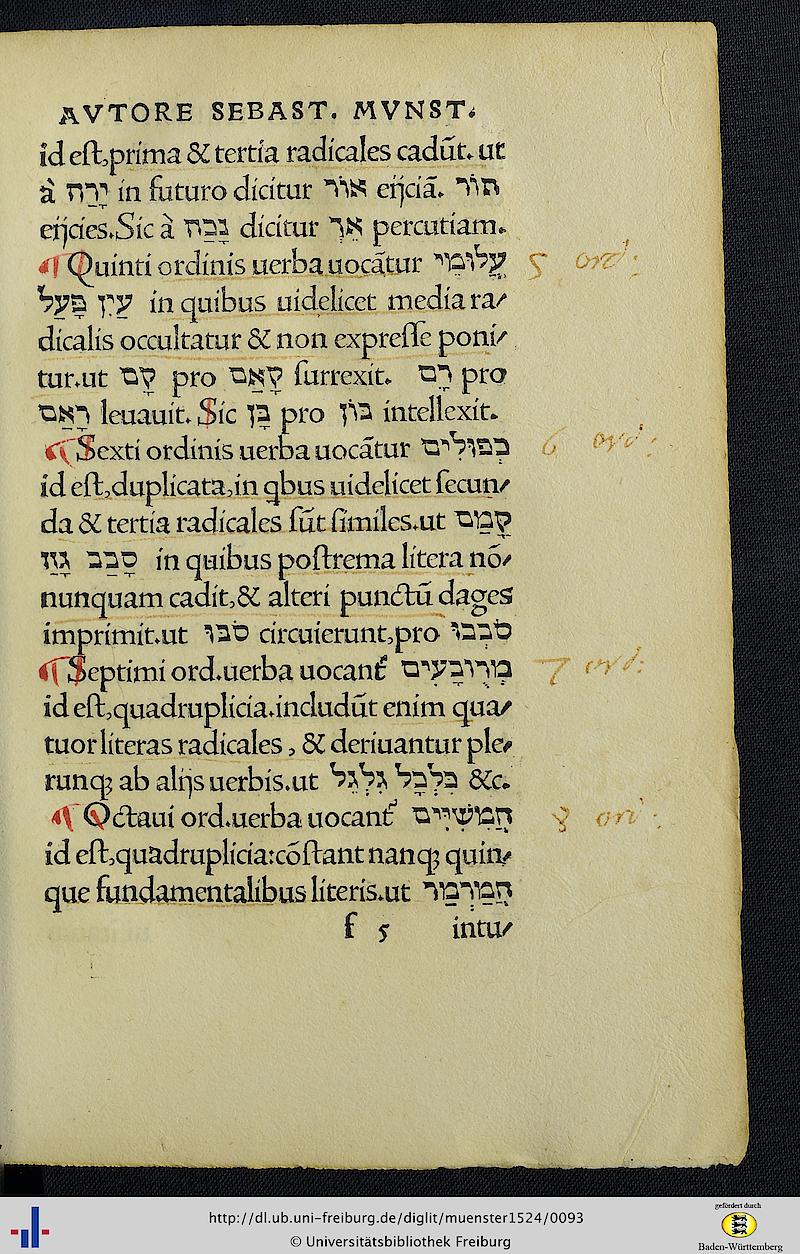 AVTORE SEBAST. MVNST.
id est,prima & tertia radicales cadūt. ut
à יָרַה in futuro dicitur אור eijciā. תור
eijcies.Sic à נָבַה dicitur אַךְ percutiam.
¶ Quinti ordinis uerba uocātur עֲלוּמֵי 5 ord:
עַיִן פָּעַל in quibus uidelicet media ra/
dicalis occultatur & non expresse poni/
tur.ut קָם pro קָאַם surrexit. רָם pro
רָאַם leuauit. Sic בָּן pro בון intellexit.
¶ Sexti ordinis uerba uocātur כְפוּלִים 6 ord:
id est,duplicata,in qbus uidelicet secun/
da & tertia radicales sūt similes.ut קָמַם
סָבַב גָּזַז in quibus postrema litera nō/
nunquam cadit,& alteri punctū dages
imprimit.ut סבו circuierunt,pro סבבו
¶ Septimi ord.uerba uocant᷑ מְרֻובָּעִים 7 ord:
id est,quadruplicia.includūt enim qua/
tuor literas radicales , & deriuantur ple/
runꝗ ab alijs uerbis.ut כִּלְכָּל גִלְגֵל &c.
¶ Octaui ord.uerba uocant᷑ חֲמִשִׁיִּים 8 ord:
id est,quadruplicia:cōstant nanꝗ quin/
que fundamentalibus literis.ut חֲמַרְמַר
f 5 intu/
http://dl.ub.uni-freiburg.de/diglit/muenster1524/0093
© Universitätsbibliothek Freiburg
gefördert durch
Baden-Württemberg